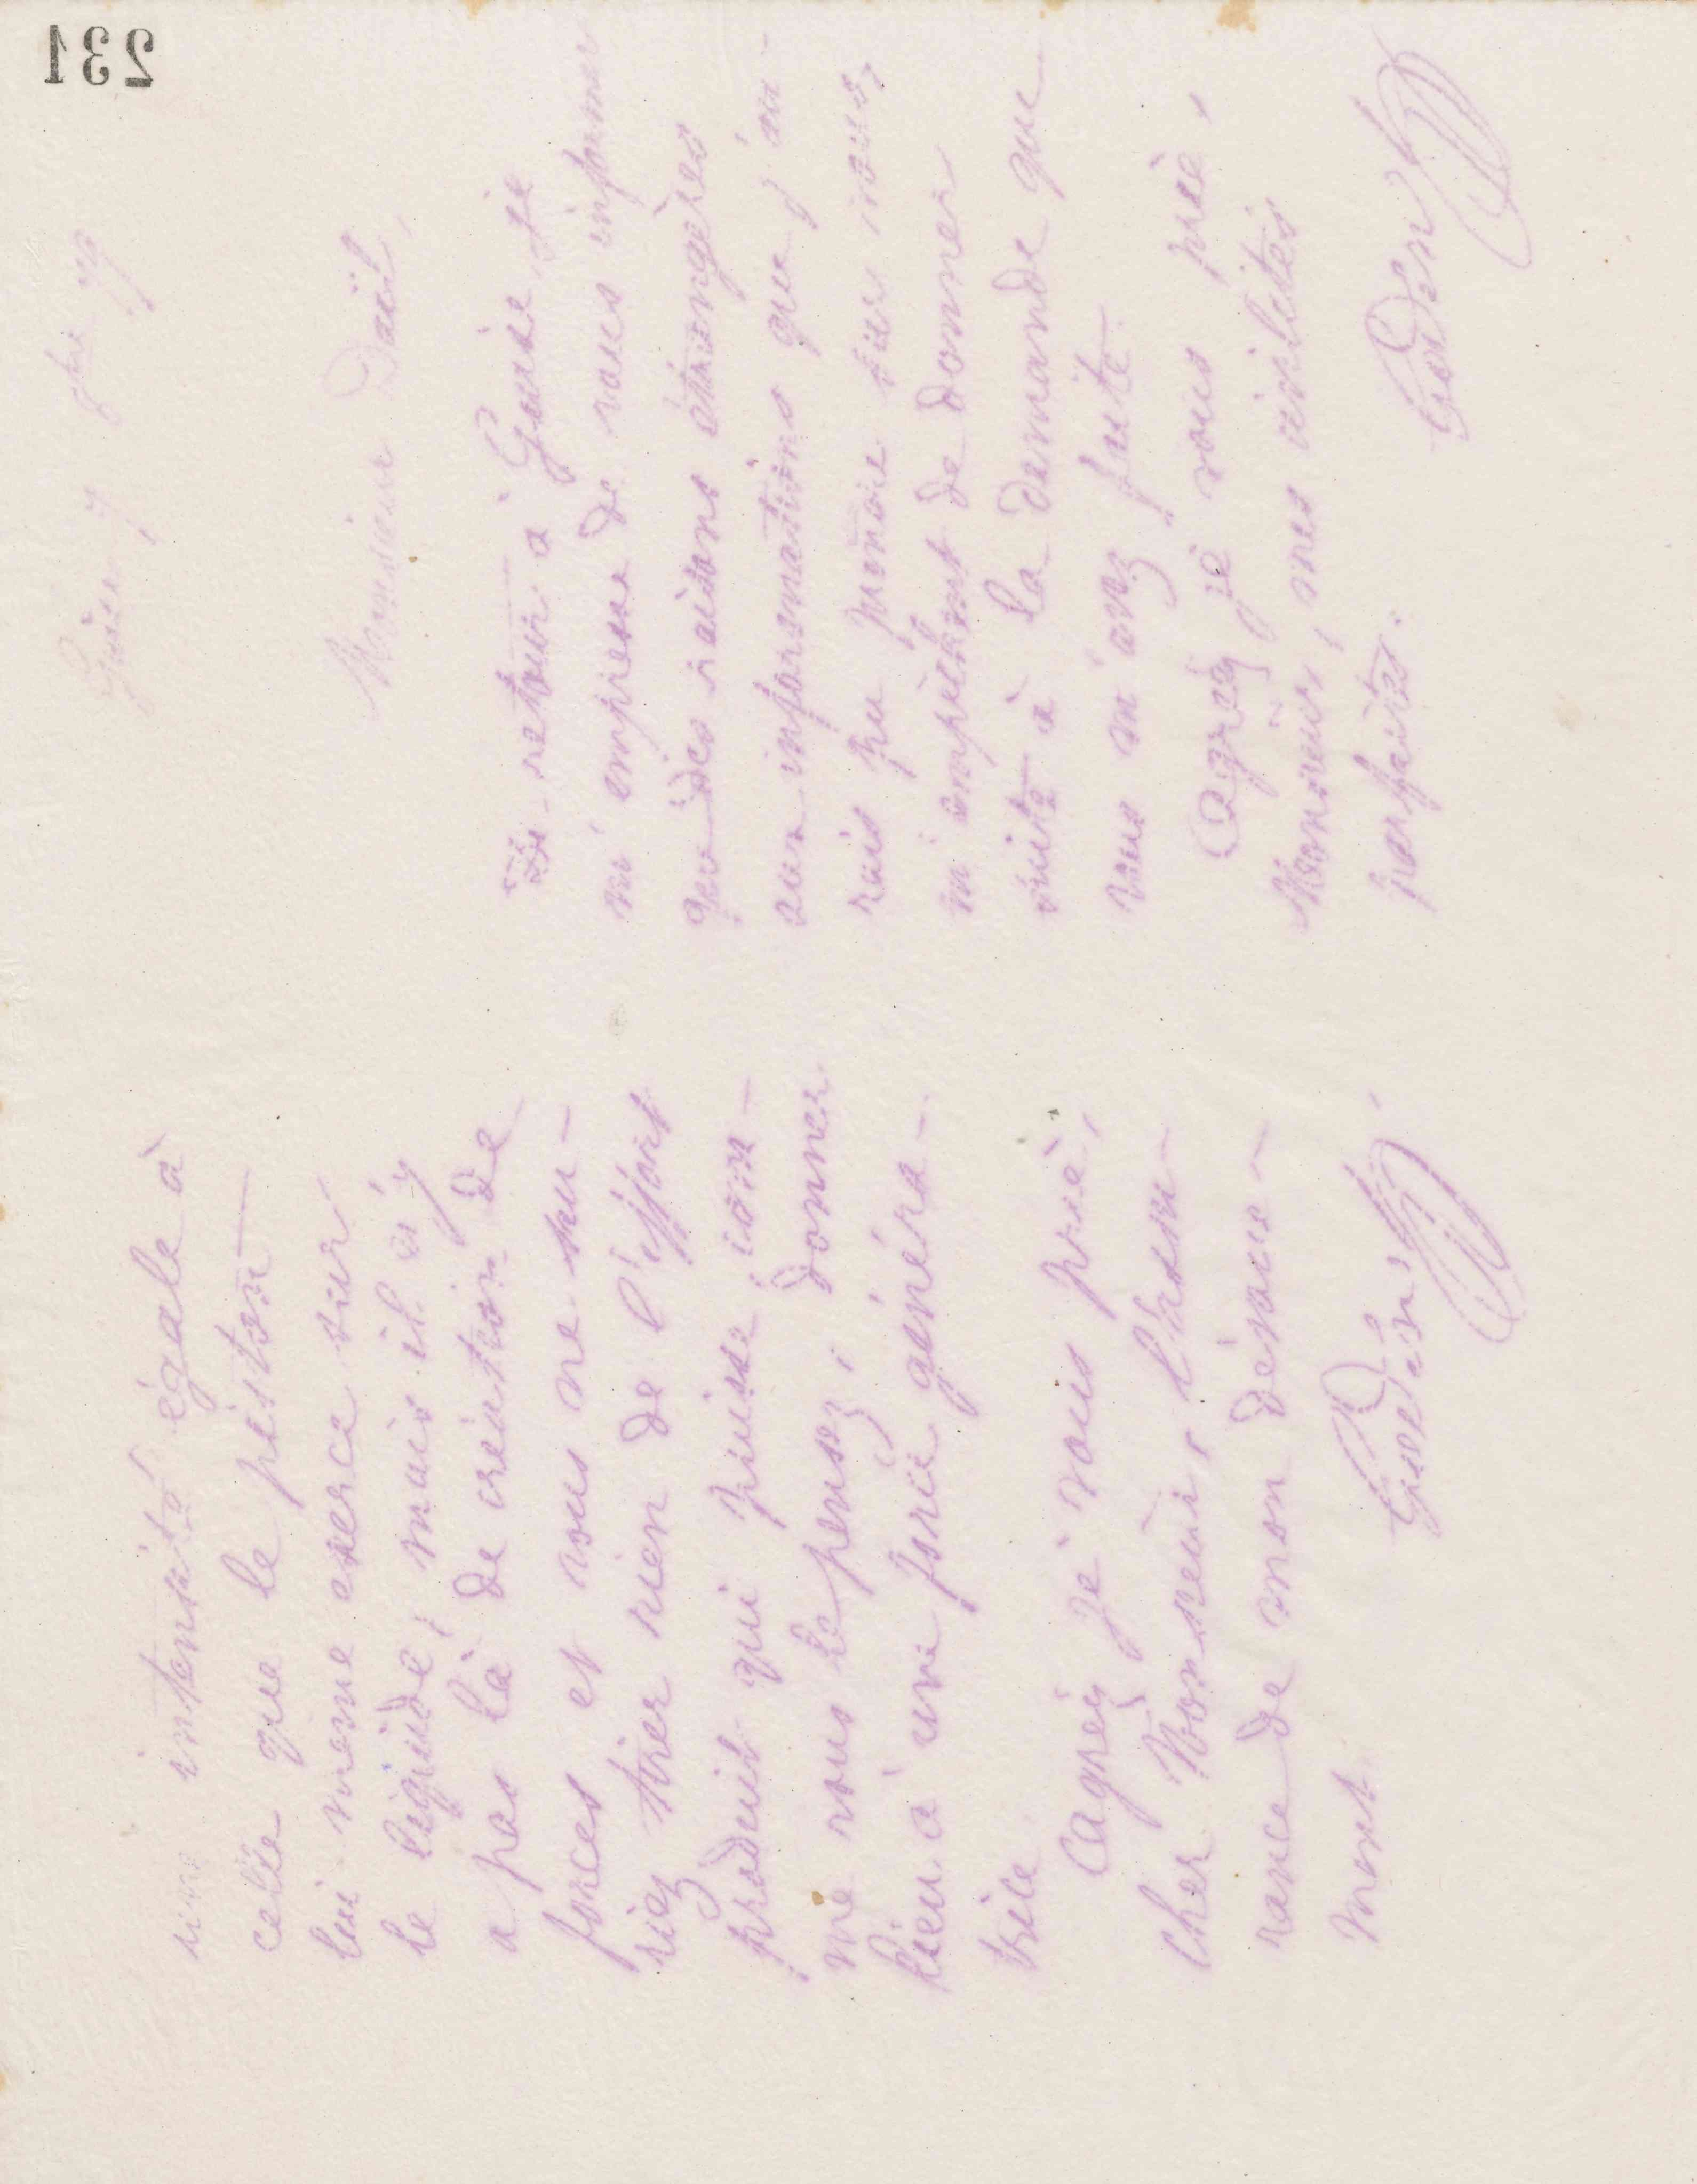 231
une intensité égale à
celle que le piston
lui meme exerce sur
le liquide, mais il n'y
a pas là de création de
forces et vous ne sau-
riez tirer rien de l'effort
produit qui puisse, com-
me vous le pensez, donner
lieu à une force généra-
trice
Agréez je vous prie,
cher Monsieur, l'assu-
rance de mon dévoue-
ment
Godin
Guise 7 79
Monsieur
De retour à Guise je
m'empresse de vous informer
que des raisons étrangères
aux informations que j'au-
rais pu prendre sur vous,
m'empêchent de donner
suite à la demande que
vous m'avez faite.
Agréez je vous prie,
Monsieur, mes civilités
parfaites.
Godin